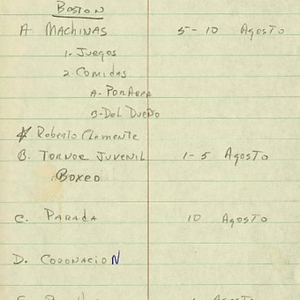 Boston
A Machinas 5-10 Agosto
1. Juegos
2. Comidas
A- Por Area
B- Del Dueño
* Roberto Clemente
B. Torneo Juvenil 1-5 Agosto
Boxeo
C. Parada 10 Agosto
D. Coronacion
Agosto